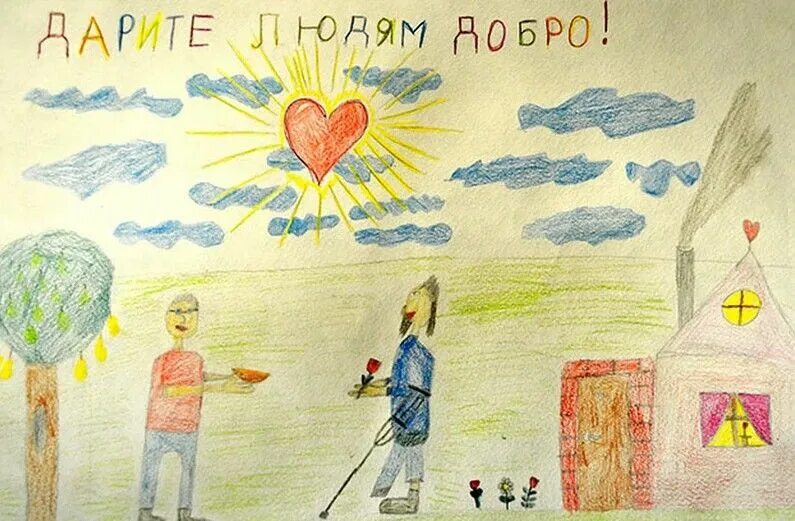 ДАРИТЕ ЛЮДЯМ ДОБРО!